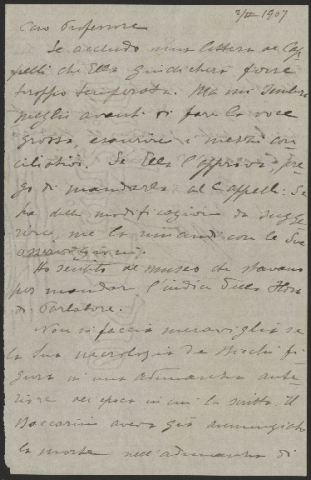 2/XII 1907
Caro Professore
Le accludo una lettera al Cap
pelli che Ella giudicherà forse
troppo temperata. Ma mi sembra
meglio avanti di fare la voce
grossa, esaurire i mezzi con
ciliativi. Se Ella l'approva, pre
go di mandarla al Cappelli: Se
ha delle modificazioni da sugge
rire, me la rimandi con le Sue
Ho sentito al museo che stavano
per mandar l'indice della Flora
di Parlatore.
Non si faccia meraviglia se
la Sua necrologia da Bicchi fi
gura in una adunanza ante
riore all'epoca in cui la scritta. Il
Baccarini aveva già annunziato
la morte nell'adunanza di